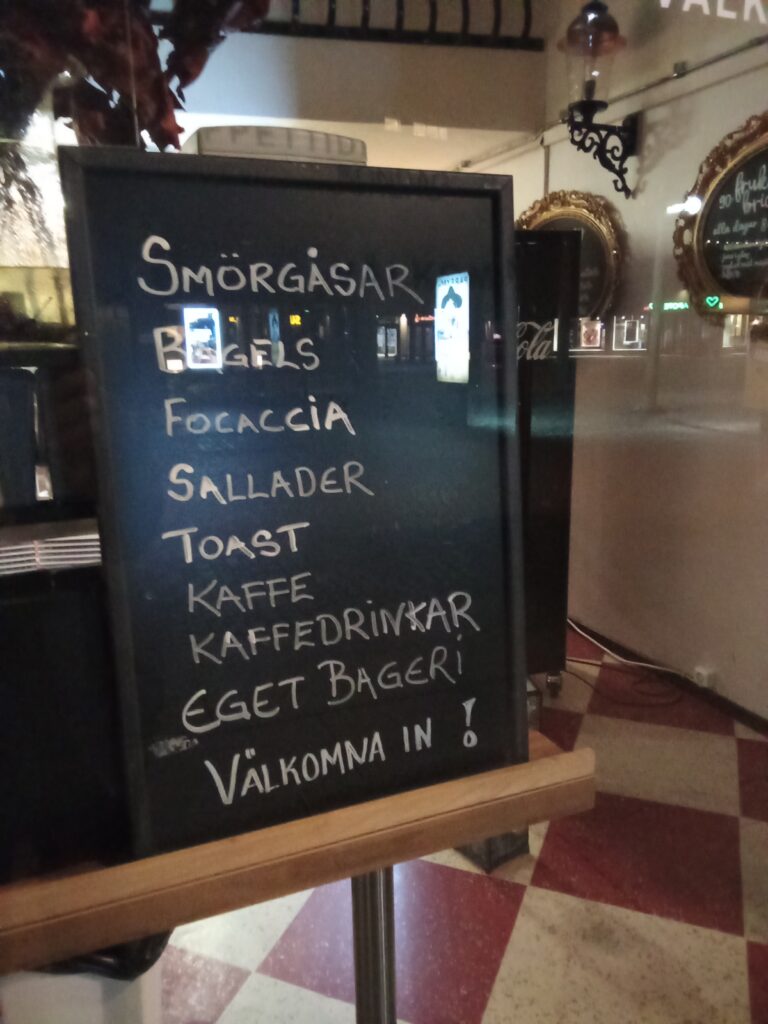 VÄLK
PETTID
SMÖRGÅSAR
BAGELS
FOCACCIA
SALLADER
TOAST
KAFFE
KAFFEDRINKAR
EGET BAGERI
VÄLKOMNA IN !
Cola
alla dagar 8